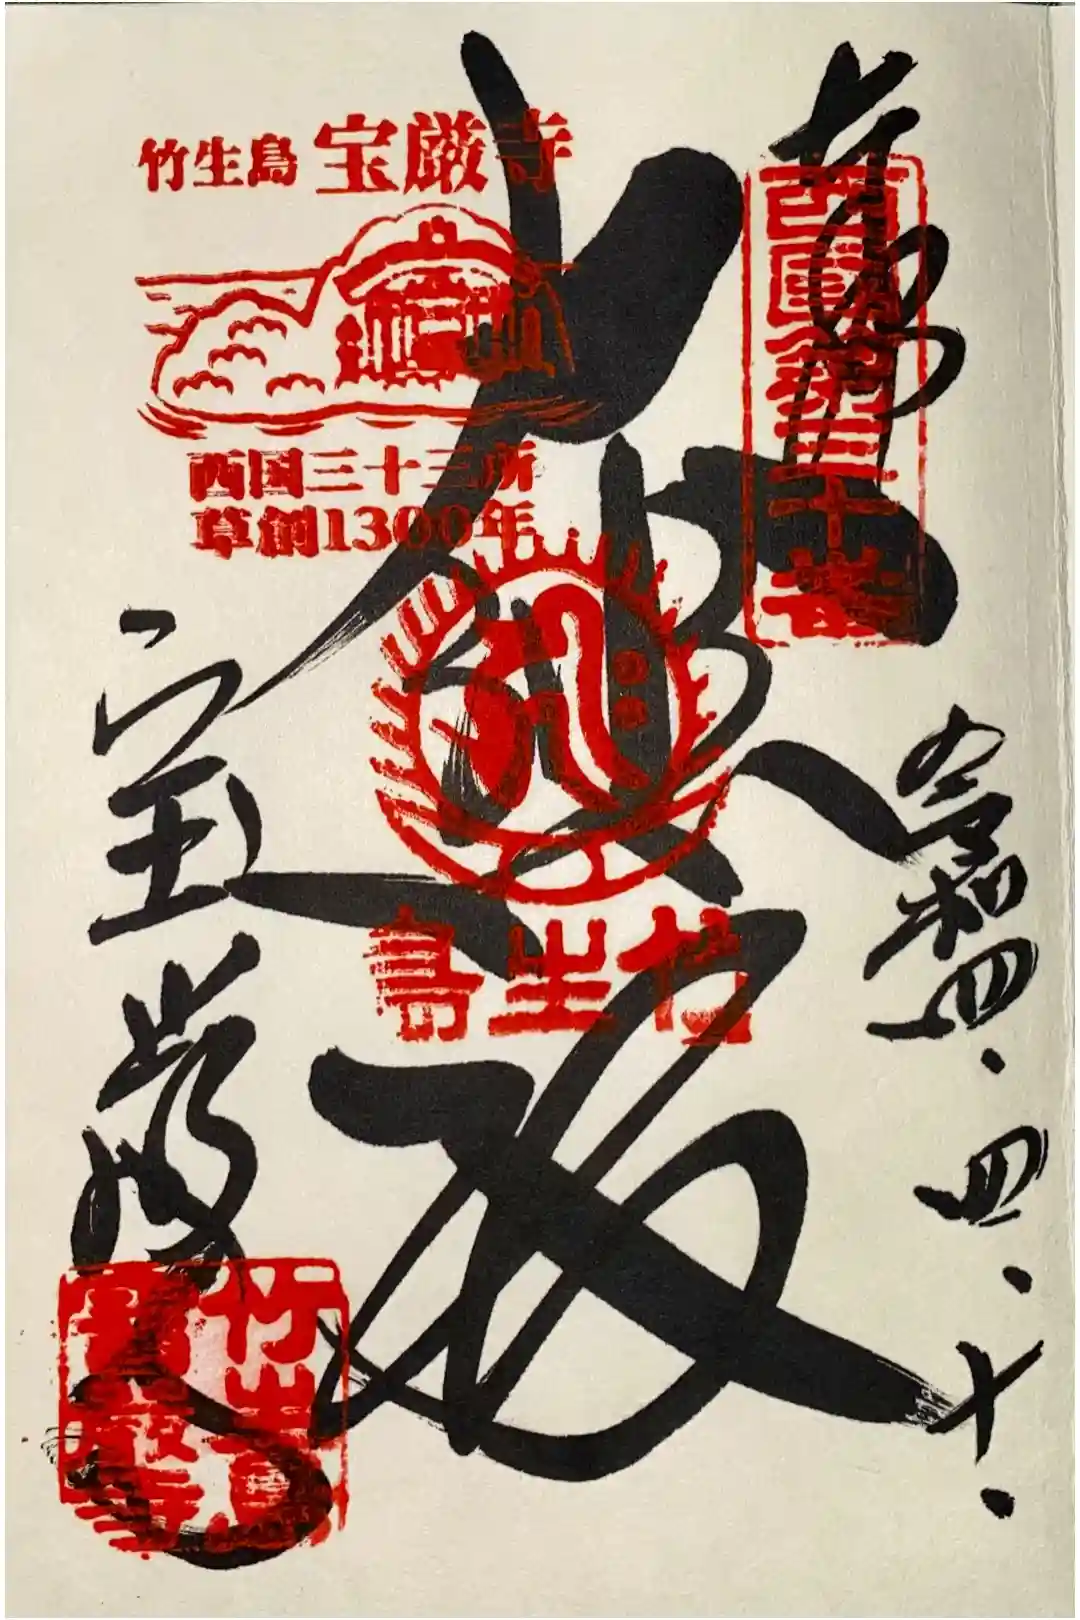 奉拝
西國第三十番
令和四.四.十.
大悲殿
竹生島 宝厳寺
西国三十三所
草創1300年
竹生島
宝厳寺
竹生島
寶厳寺